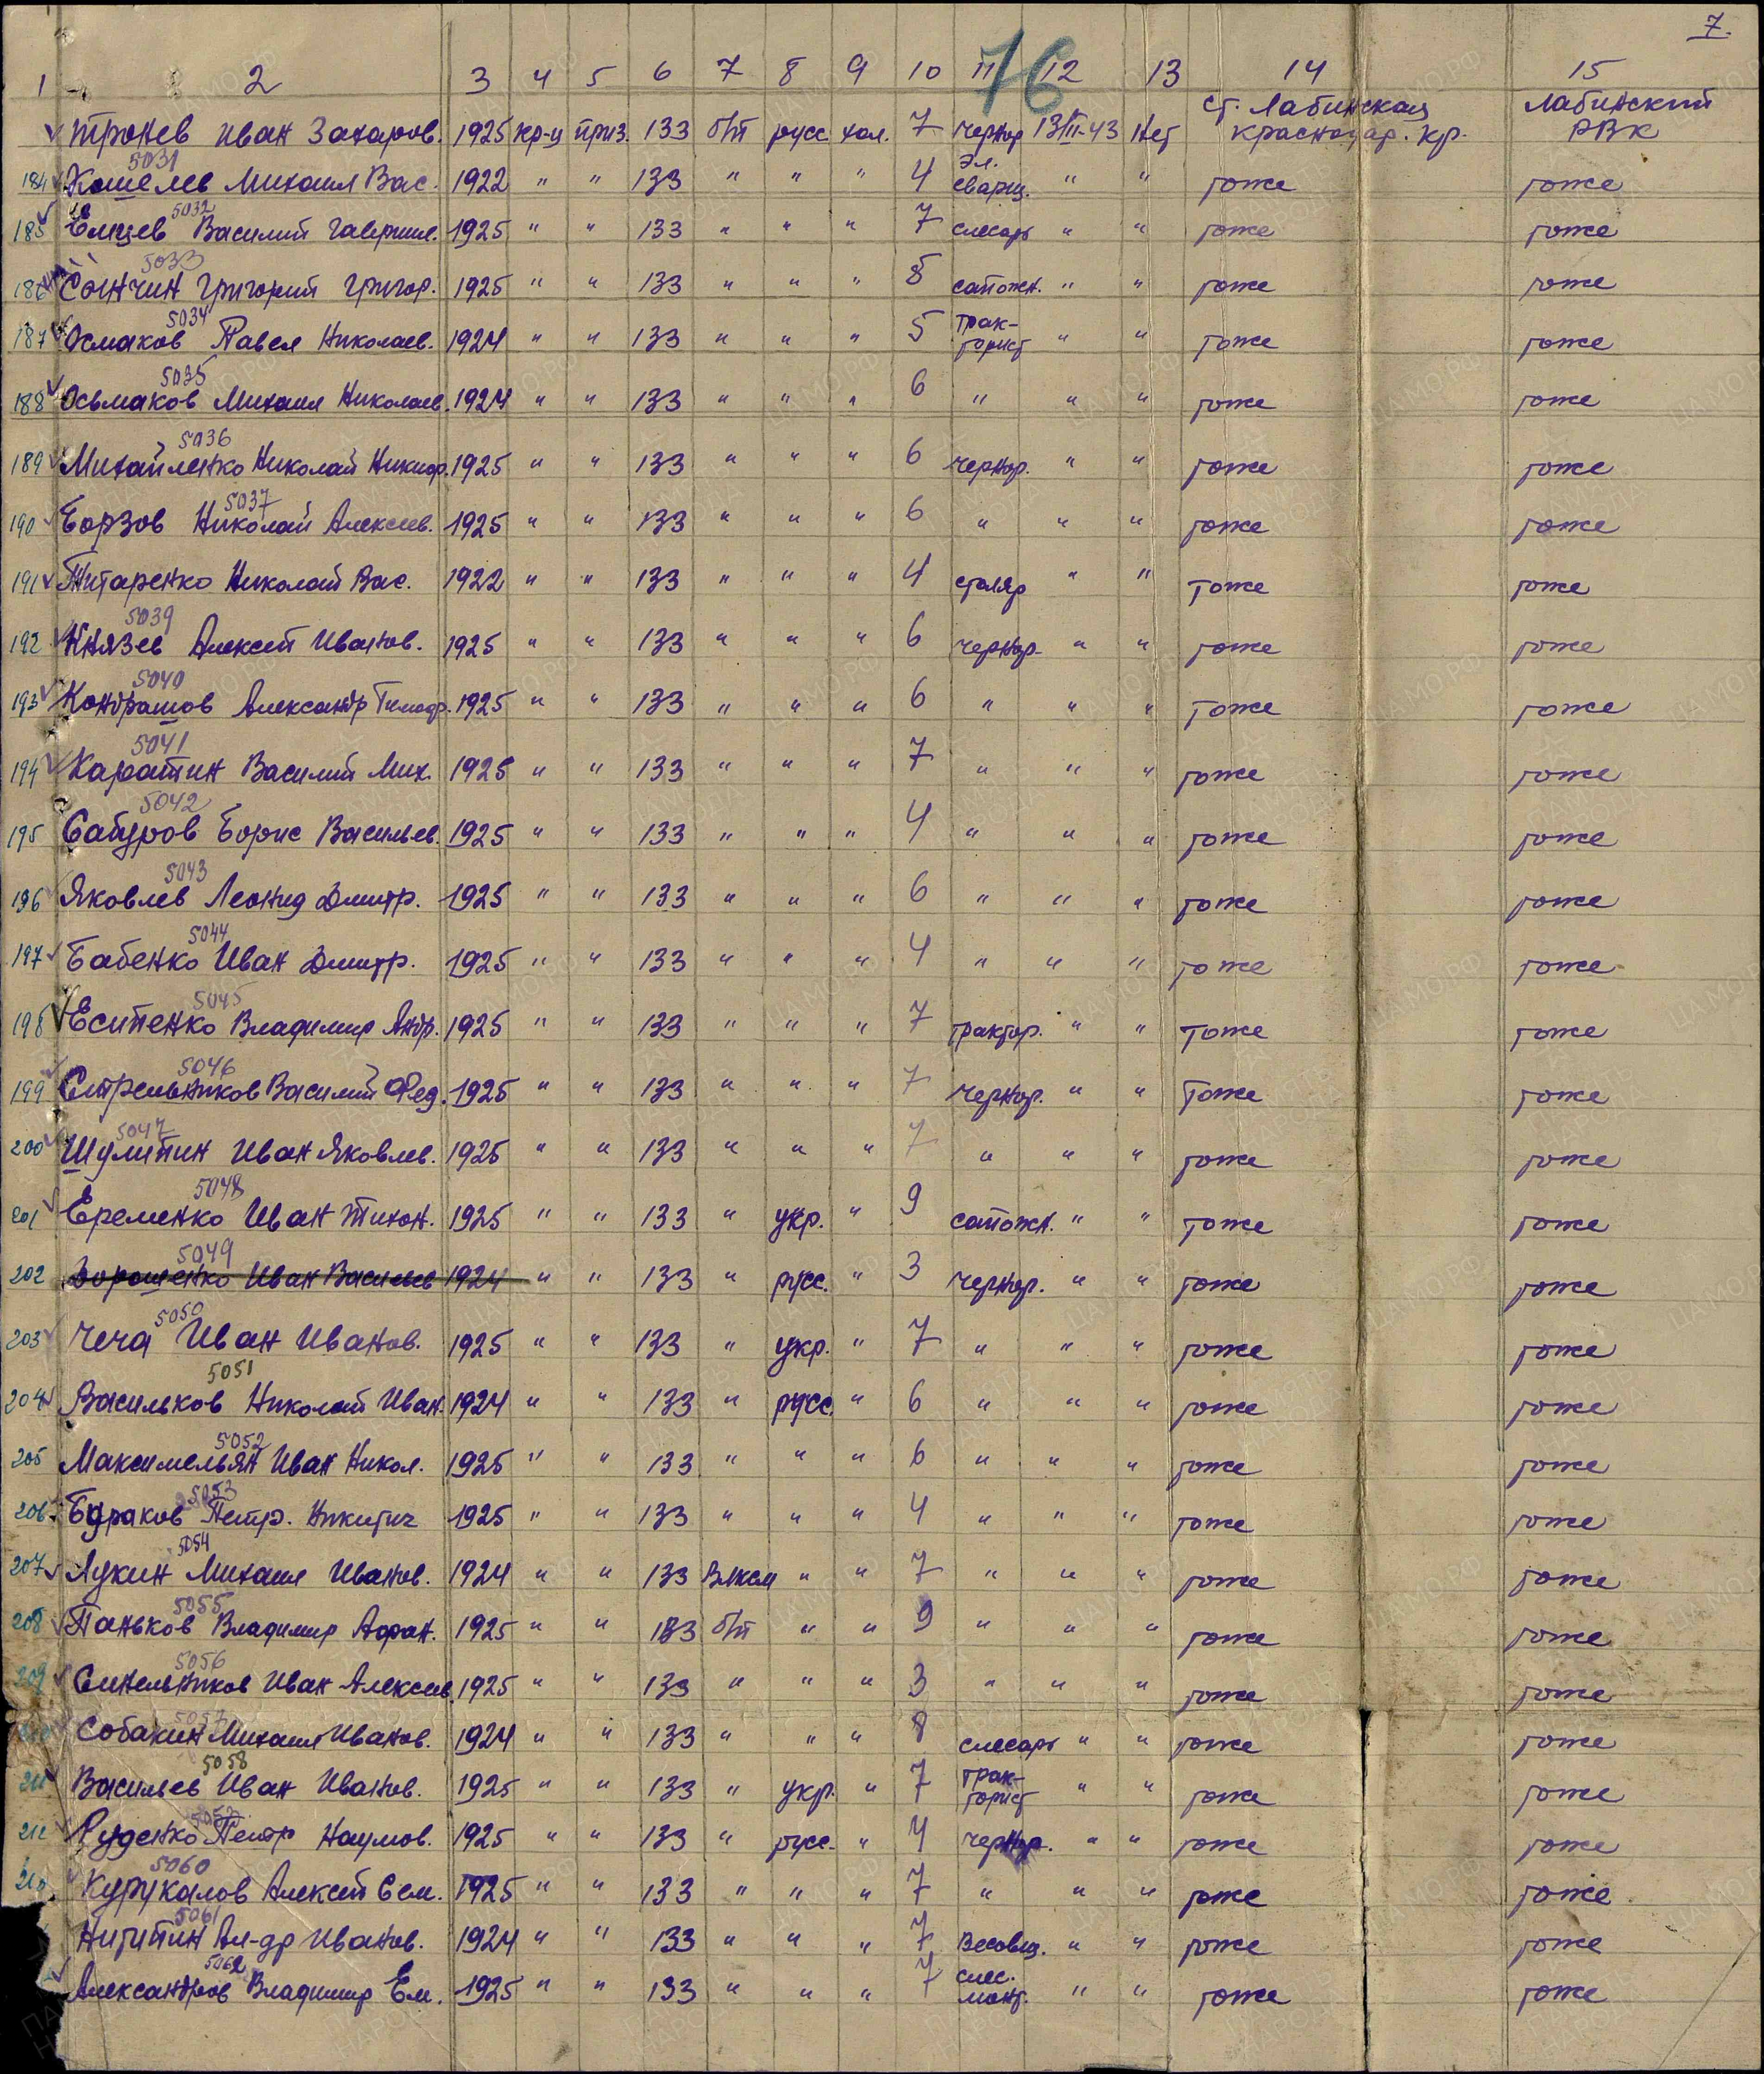 7.
76
1 2 3 4 5 6 7 8 9 10 11 12 13 14 15
Тронев Иван Захаров. 1925 кр-ц приз. 133 б/п русс хол. 7 чернор 13/III-43 Нет ст. Лабинская Краснодар. кр. Лабинский РВК
5031
184 Кошелев Михаил Вас. 1922 " " 133 " " " 4 эл. сварщ. " " тоже тоже
5032
185 Емцев Василий Гаврил. 1925 " " 133 " " " 7 слесарь " " тоже тоже
5033
186 Сончин Григорий Григор. 1925 " " 133 " " " 8 сапожн. " " тоже тоже
5034
187 Осмаков Павел Николаев. 1924 " " 133 " " " 5 трак-торист " " тоже тоже
5035
188 Осьмаков Михаил Николаев. 1924 " " 133 " " " 6 " " " тоже тоже
5036
189 Михайленко Николай Никиф. 1925 " " 133 " " " 6 чернор. " " тоже тоже
5037
190 Борзов Николай Алексеев. 1925 " " 133 " " " 6 " " " тоже тоже
191 Титаренко Николай Вас. 1922 " " 133 " " " 4 столяр " " тоже тоже
5039
192 Князев Алексей Иванов. 1925 " " 133 " " " 6 чернор. " " тоже тоже
5040
193 Кондрашов Александр Тимоф. 1925 " " 133 " " " 6 " " " тоже тоже
5041
194 Карапин Василий Мих. 1925 " " 133 " " " 7 " " " тоже тоже
5042
195 Сабуров Борис Васильев. 1925 " " 133 " " " 4 " " " тоже тоже
5043
196 Яковлев Леонид Дмитр. 1925 " " 133 " " " 6 " " " тоже тоже
5044
197 Бабенко Иван Дмитр. 1925 " " 133 " " " 4 " " " тоже тоже
5045
198 Есипенко Владимир Андр. 1925 " " 133 " " " 7 трактор. " " тоже тоже
5046
199 Стрельников Василий Фед. 1925 " " 133 " " " 7 чернор. " " тоже тоже
5047
200 Шулипин Иван Яковлев. 1925 " " 133 " " " 7 " " " тоже тоже
5048
201 Еременко Иван Тихон. 1925 " " 133 " укр. " 9 сапожн. " " тоже тоже
5049
202 Дорошенко Иван Васильев 1924 " " 133 " русс. " 3 чернор. " " тоже тоже
5050
203 Чеча Иван Иванов. 1925 " " 133 " укр. " 7 " " " тоже тоже
5051
204 Васильков Николай Иван. 1924 " " 133 " русс. " 6 " " " тоже тоже
5052
205 Максимельян Иван Никол. 1925 " " 133 " " " 6 " " " тоже тоже
5053
206 Бураков Петр. Никитич 1925 " " 133 " " " 4 " " " тоже тоже
5054
207 Лукин Михаил Иванов. 1924 " " 133 Влксм " " 7 " " " тоже тоже
5055
208 Паньков Владимир Афан. 1925 " " 133 б/п " " 9 " " " тоже тоже
5056
209 Синельников Иван Алексеев. 1925 " " 133 " " " 3 " " " тоже тоже
5057
Собакин Михаил Иванов. 1924 " " 133 " " " 8 слесарь " " тоже тоже
5058
211 Васильев Иван Иванов. 1925 " " 133 " укр. " 7 трак-торист " " тоже тоже
212 Руденко Петр Наумов. 1925 " " 133 " русс. " 4 чернор. " " тоже тоже
5060
Курукалов Алексей Сем. 1925 " " 133 " " " 7 " " " тоже тоже
5061
Нитипин Ал-др Иванов. 1924 " " 133 " " " 7 весовщ. " " тоже тоже
5062
Александров Владимир Ем. 1925 " " 133 " " " 7 слес. монт. " " тоже тоже